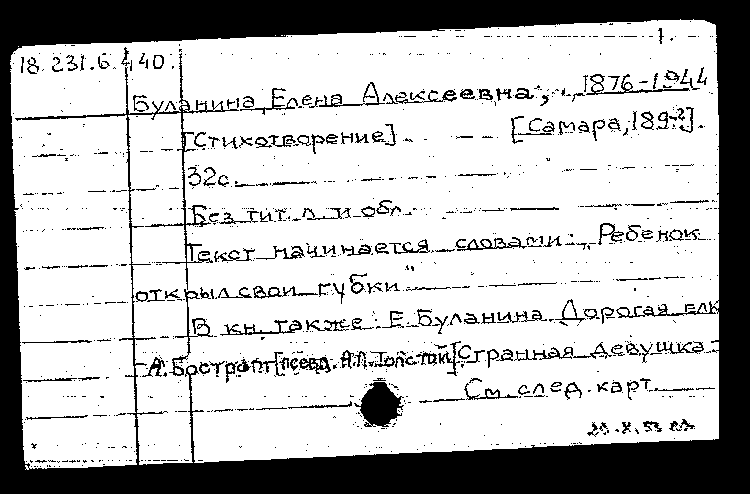 1.
18.231.6.440.
Буланина, Елена Алексеевна, 1876-1944
[Стихотворение]. [Самара, 189-?].
32с.
Без тит. л. и обл.
Текст начинается словами: „Ребенок
открыл свои губки"
В кн. также: Е. Буланина. Дорогая елк
А. Бострот [псевд. А.Л. Толстой]. Странная девушка.
См. след. карт.